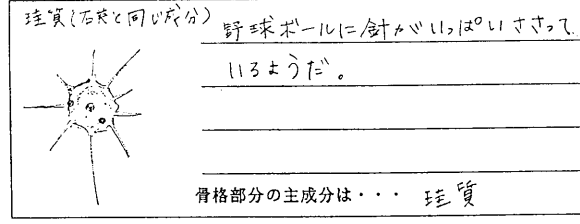 珪質(石英と同じ成分)
野球ボールに針がいっぱいささって
いるようだ。
骨格部分の主成分は・・・ 珪質